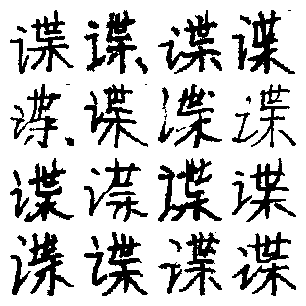 谍谍、谍谍
谍、谍谍谍
谍谍谍谍
谍谍谍谍